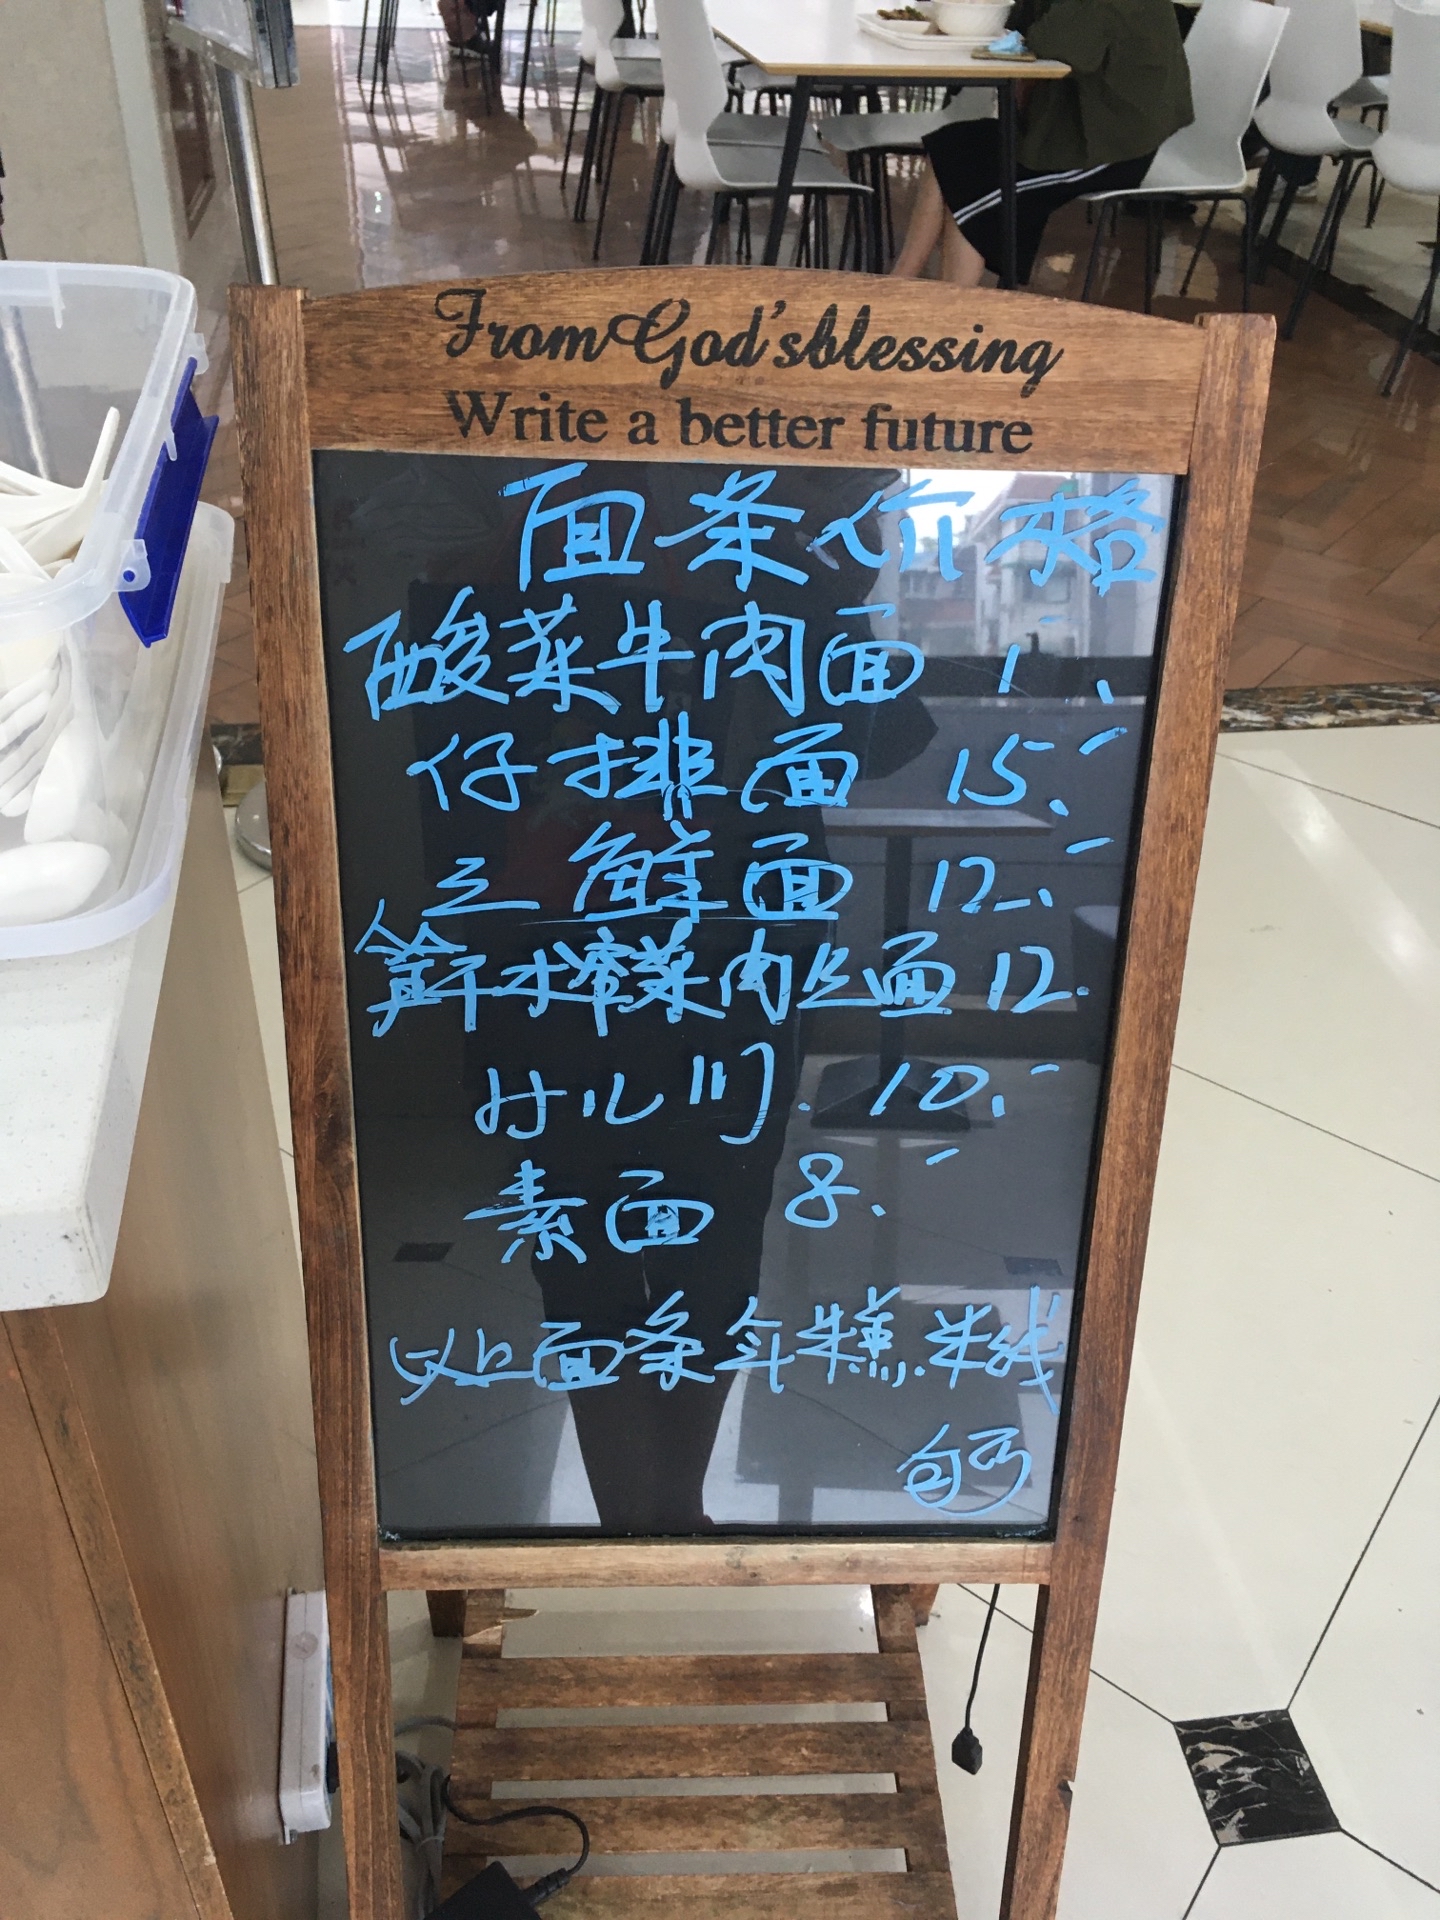 From God'sblessing
Write a better future
面条价格
酸菜牛肉面 1
仔排面 15.
三鲜面 12.
笋干榨菜肉丝面 12.
片儿川. 10.
素面 8.
以上面条年糕.米线
均可